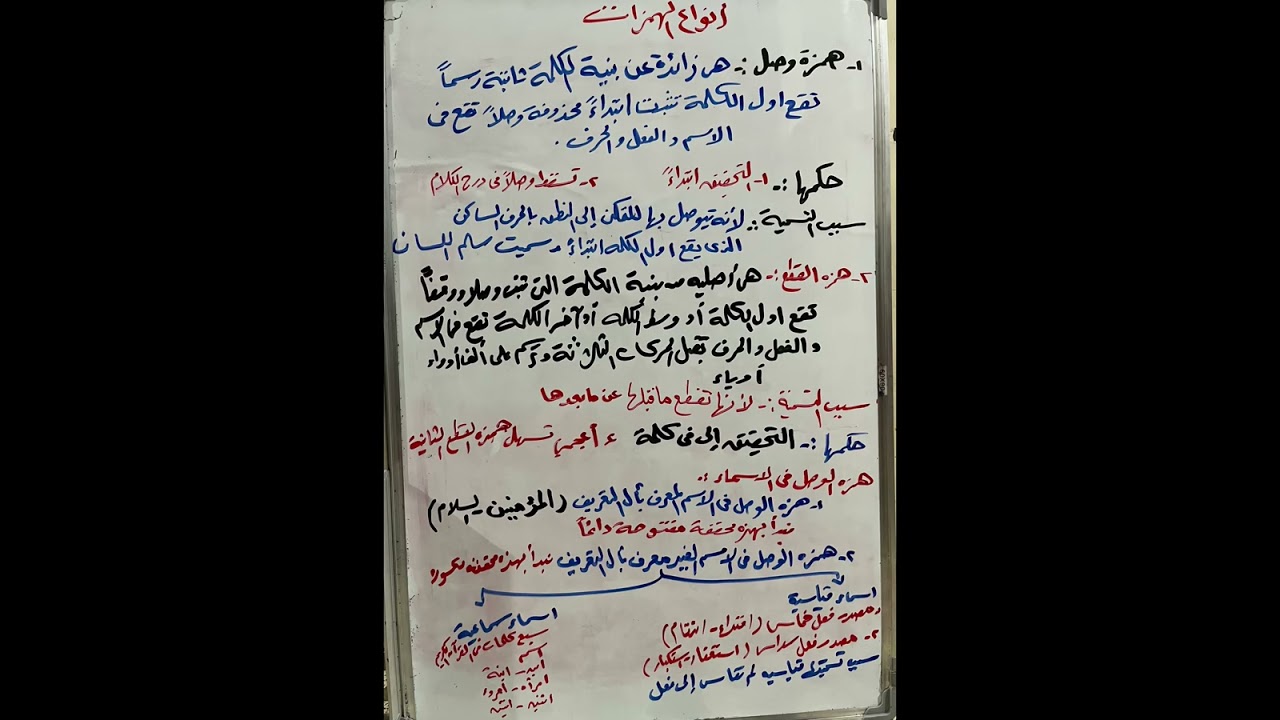 أنواع الهمزات
١- همزة وصل :- هى زائدة عن بنية الكلمة ثابتة رسماً
تقع اول الكلمة تثبت ابتداءً محذوفة وصلاً تقع فى
الاسم والفعل والحرف .
حكمها :- ١- التحقيق ابتداءً ٢- تسقط وصلاً فى درج الكلام
سبب التسمية :- لأنه يتوصل بها للتمكن إلى النطق بالحرف الساكن
الذى يقع اول الكلمه ابتداءً وسميت سلم اللسان
٢- همزه القطع :- هى أصليه من بنية الكلمة التى تثبت وصلا ووقفاً
تقع اول الكلمة أو وسط الكلمه أو آخر الكلمة تقع فى الاسم
والفعل والحرف تقبل الحركات الثلاثة وترسم على ألف أو واو
أو ياء
سبب التسمية :- لأنها تقطع ما قبلها عن ما بعدها
حكمها :- التحقيق إلى فى كلمة ءأعجمي تسهل همزه القطع الثانية
همزه الوصل فى الاسماء :-
١- همزه الوصل فى الاسم المعرف بأل التعريف (المؤمنين - السلام)
نبدأ بهمزه محققة مفتوحة دائماً
٢- همزه الوصل فى الاسم الغير معرف بأل التعريف نبدأ بهمزه محققه مكسورة
اسماء قياسية
١- مصدر فعل خماسى (افتداء - انتقام)
٢- مصدر فعل سداسى (استغفار - استكبار)
سبب تسميتها قياسيه لم تقاس إلى فعل
اسماء سماعية
سبع كلمات فى القرآن الكريم
اسم
ابن - ابنة
امرأه - امرؤ
اثنين - اثنتين